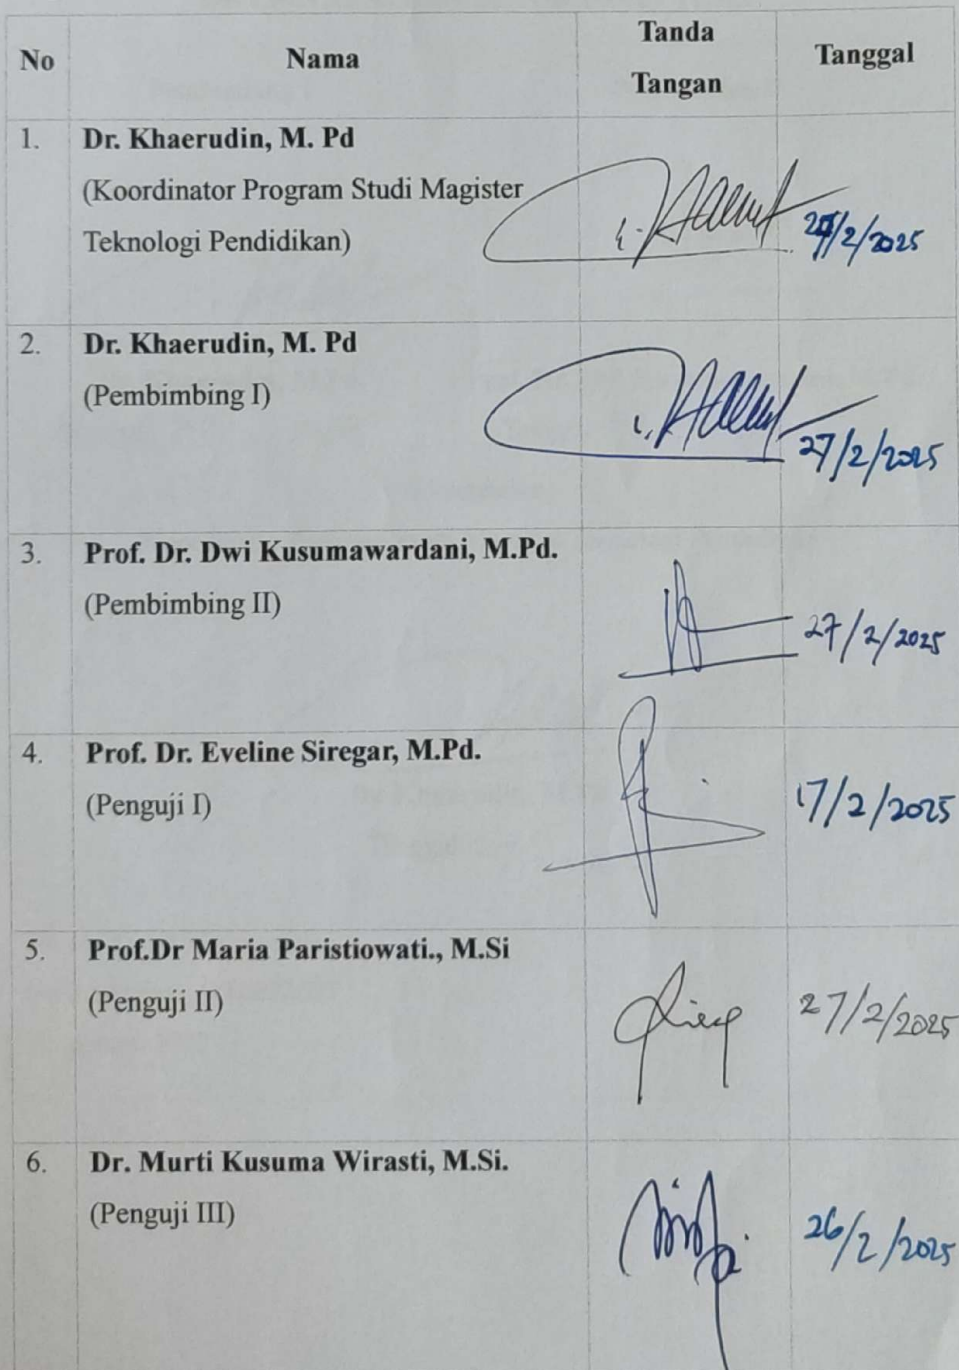 No Nama Tanda Tangan Tanggal
1. Dr. Khaerudin, M. Pd
(Koordinator Program Studi Magister
Teknologi Pendidikan)
/2/2025
2. Dr. Khaerudin, M. Pd
(Pembimbing I)
27/2/2025
3. Prof. Dr. Dwi Kusumawardani, M.Pd.
(Pembimbing II)
27/2/2025
4. Prof. Dr. Eveline Siregar, M.Pd.
(Penguji I)
17/2/2025
5. Prof.Dr Maria Paristiowati., M.Si
(Penguji II)
27/2/2025
6. Dr. Murti Kusuma Wirasti, M.Si.
(Penguji III)
26/2/2025